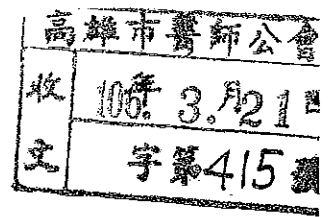 高雄市醫師公會
收文
106年3.月21日
字第415號